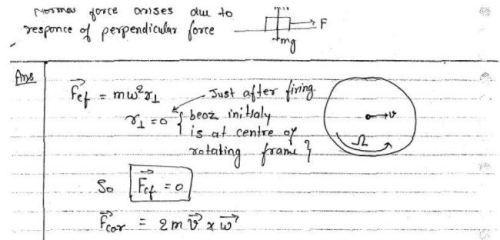 Normal force arises due to
responce of perpendicular force
F
mg
Ans
F⃗cf = mω²r⊥
Just after firing
r⊥ = 0 { becoz initialy
is at centre of
rotating frame }
v
Ω
So F⃗cf = 0
F⃗cor = 2m v⃗ × ω⃗